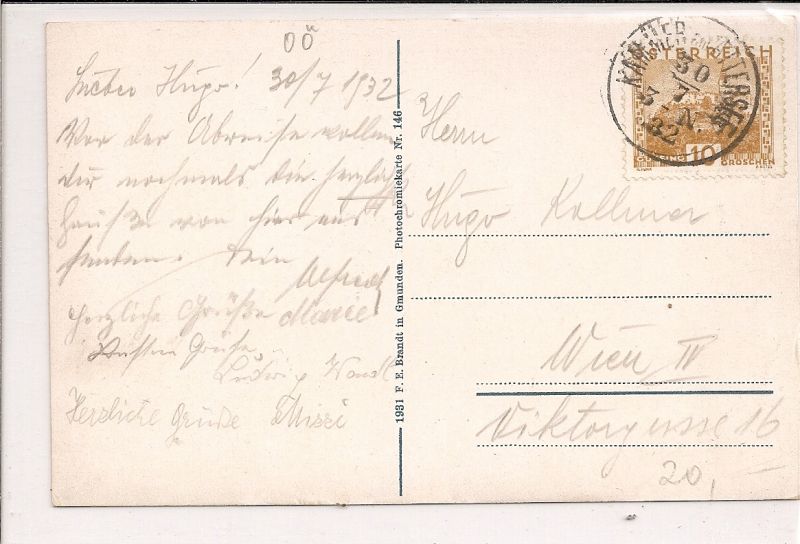 OÖ
Lieber Hugo! 30/7 1932
Vor der Abreise wollen
wir nochmals die herzlich
von hier aus
senden. Dein
Alfred
Herzliche Grüße Marie
Grüße
Ludwig
Herzliche Grüße Mizzi
1931 F. E. Brandt in Gmunden. Photochromiekarte Nr. 146
ÖSTERREICH
30
7
32
10
GROSCHEN
Herrn
Hugo Kollmer
Wien IV
Viktorgasse 16
20,—